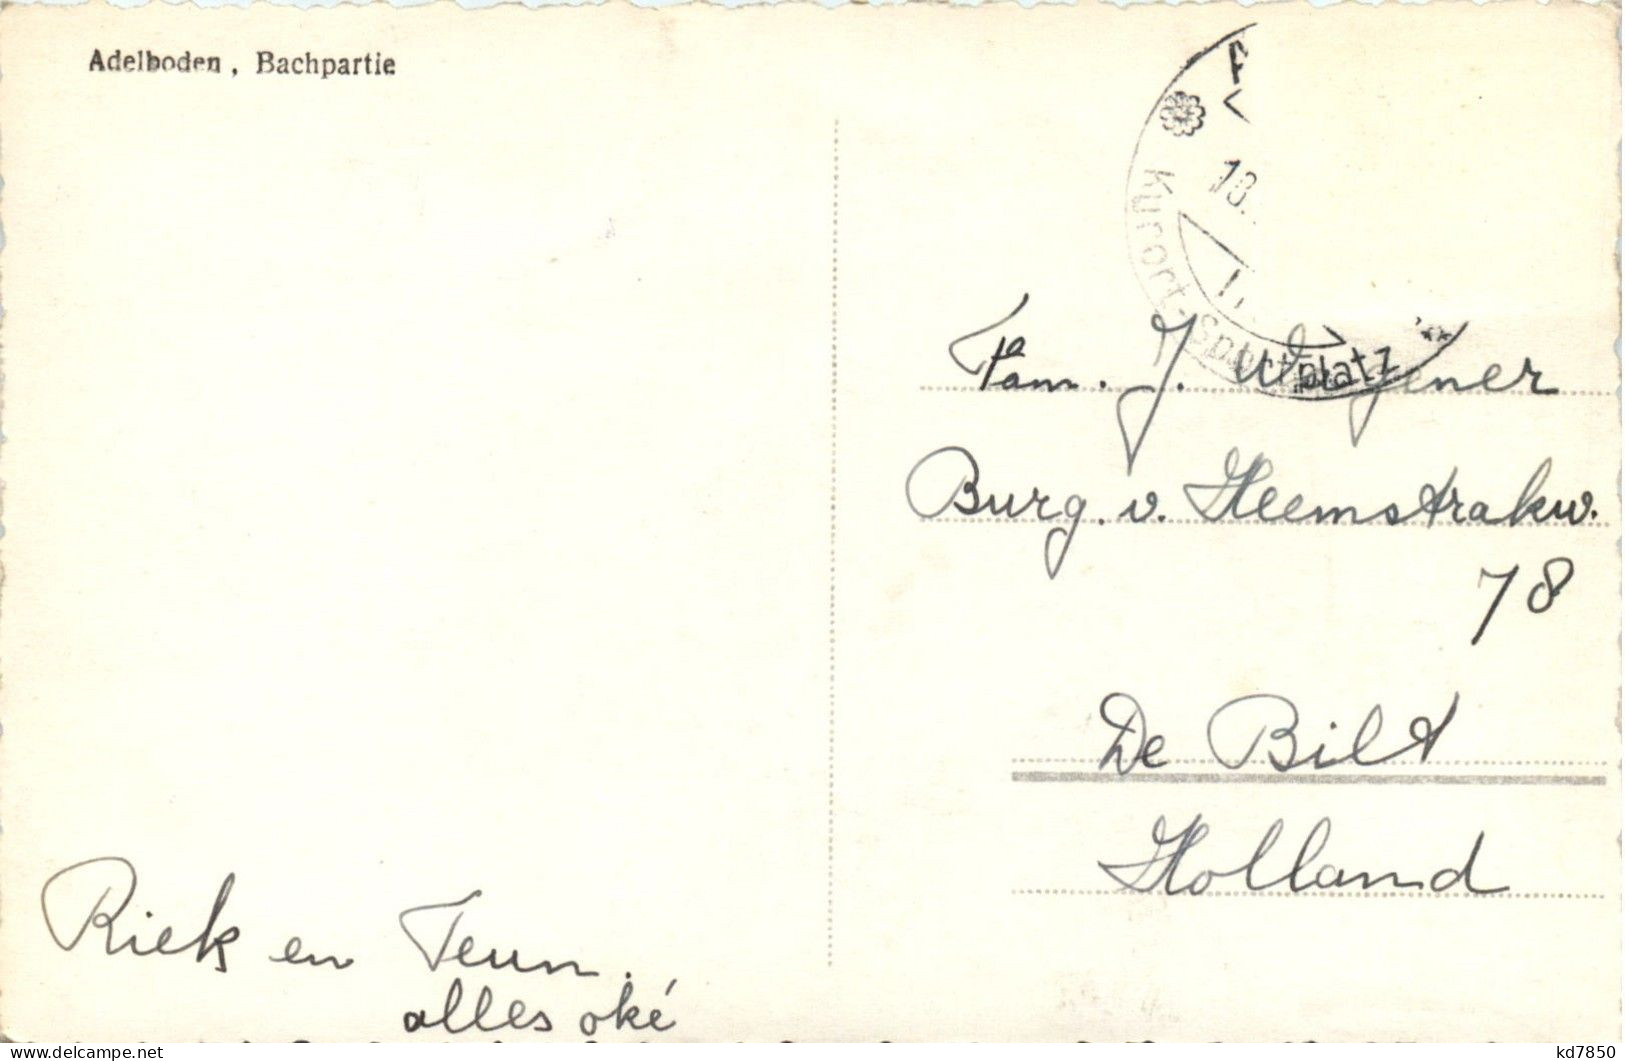 Adelboden, Bachpartie
Kurort-Sportplatz
18.
Fam. J. Wegener
Burg. v. Heemstrakw.
78
De Bilt
Holland
Riek en Teun.
alles oké
kd7850